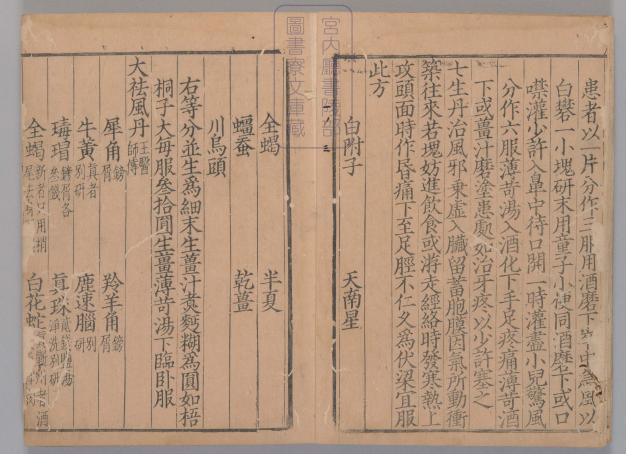 患者以一片分作三服用酒磨下卒中爲風以
白礬一小塊研末用童子小便同酒磨下或口
噤灌少許入鼻中待口開一時灌盡小兒驚風
分作六服薄苛湯入酒化下手足疼痛薄苛酒
下或薑汁磨塗患處如治牙疼以少許塞之
七生丹治風邪乗虛入臟留蓄胞膜因氣所動衝
築往來若塊妨進飲食或游走經絡時發寒熱上
攻頭面時作昏痛下至足脛不仁久爲伏梁宜服
此方
白附子 天南星
全蝎 半夏
蝠蚕 乾薑
川烏頭
右等分並生爲細末生薑汁煑麪糊爲圓如梧
桐子大每服叁拾圓生薑薄苛湯下臨卧服
大祛風丹 王醫師傳
犀角 鎊屑 羚羊角 鎊屑
牛黄 真者別研 麈速腦 別研
瑇瑁 鎊屑各 真珠 淨洗別研
全蝎 新者 用梢尾去 白花蛇 者酒
宮内廳書陵部
圖書寮文庫藏